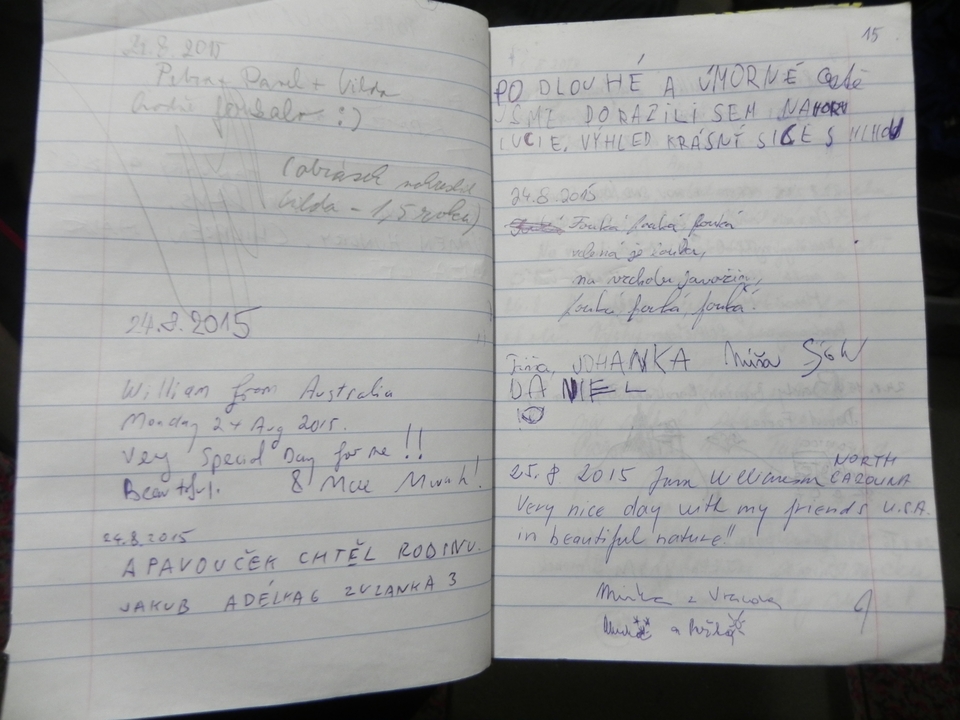 24.8.2015
Petra + Pavel + Vilda
(obrázek nakreslil
Vilda - 1,5 roku)
24.8.2015
William from Australia
Monday 24 Aug 2015.
Very Special Day for me!!
Beautiful. 8
24.8.2015
A PAVOUČEK CHTĚL RODINU.
JAKUB ADÉLKA 6 ZUZANKA 3
15
PO DLOUHÉ A ÚMORNÉ cestě
JSME DORAZILI SEM NAHORU
LUCIE, VÝHLED KRÁSNÝ SICE S MLHOU
24.8.2015
Fouká fouká fouká
zelená je louka,
na vrcholu Javořice,
fouká fouká fouká.
JOHANKA Míša
DANIEL
25.8 2015 NORTH CAROLINA
Very nice day with my friends U.S.A.
in beautiful nature!!
Mirka z
a